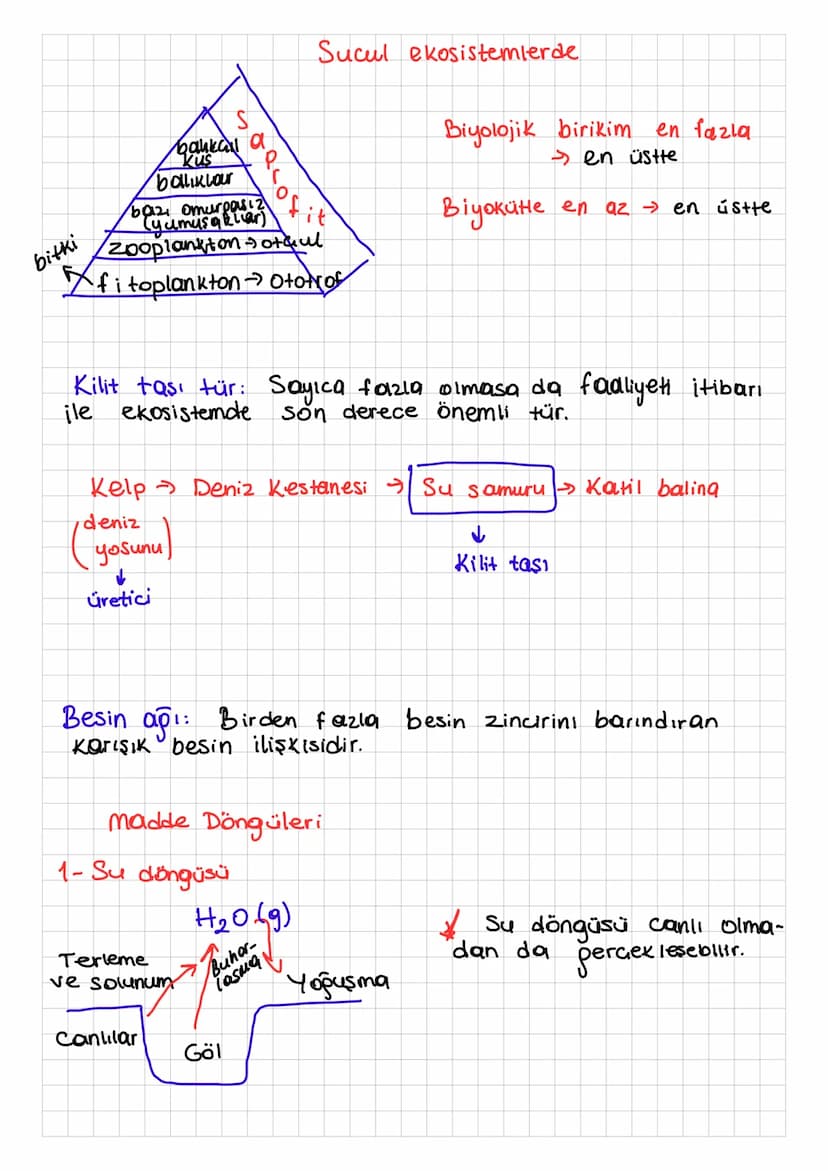 Sucul ekosistemlerde
Saprofit
balıkçıl
kuş
balıklar
bazı omurgasız
(yumuşakçalar)
zooplankton → otçul
bitki
fitoplankton → Ototrof
Biyolojik birikim en fazla
→ en üstte
Biyokütle en az → en üstte
Kilit taşı tür: Sayıca fazla olmasa da faaliyeti itibarı
ile ekosistemde son derece önemli tür.
Kelp → Deniz Kestanesi → Su samuru → Katil balina
(deniz
yosunu)
↓
üretici
↓
Kilit taşı
Besin ağı: Birden fazla besin zincirini barındıran
karışık besin ilişkisidir.
Madde Döngüleri
1- Su döngüsü
H₂O (g)
Terleme
ve solunum
Buhar-
laşma
Yoğuşma
Canlılar
Göl
* Su döngüsü canlı olma-
dan da gerçekleşebilir.